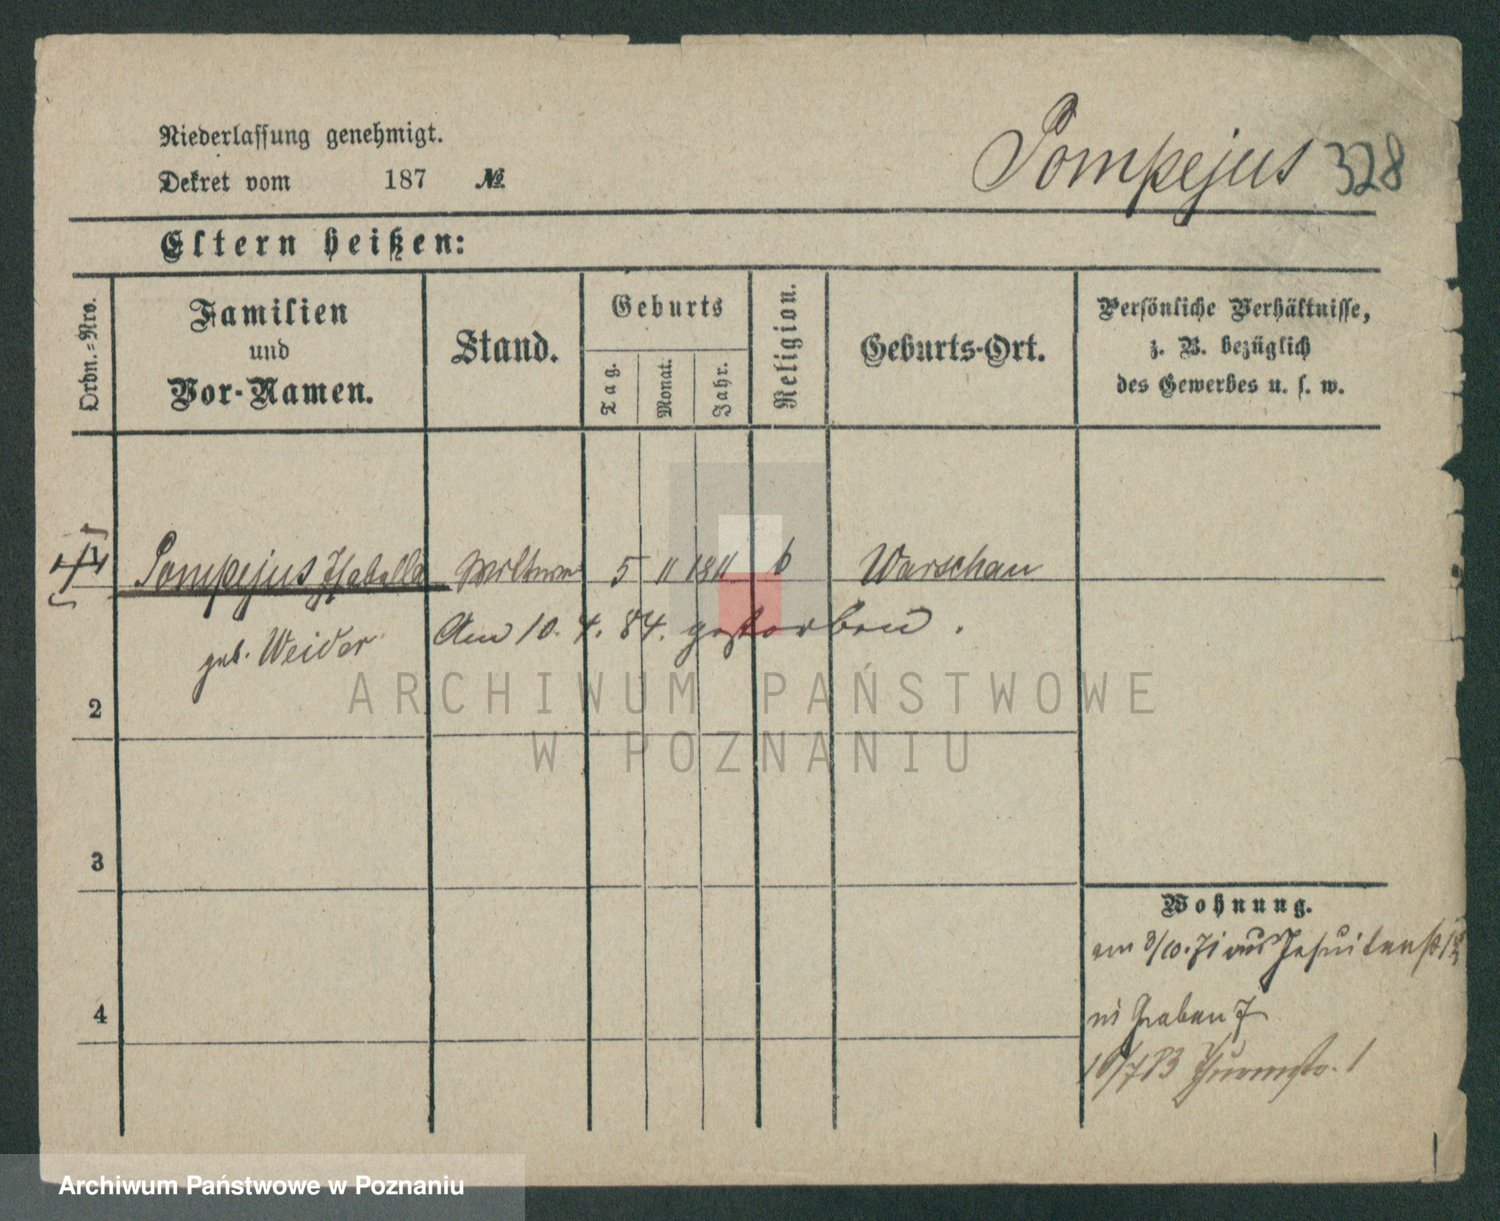 Niederlassung genehmigt.
Dekret vom 187 №
Pompejus 328
Eltern heißen:
Ordn.-Nro.
Familien
und
Vor-Namen.
Stand.
Geburts
Tag.
Monat.
Jahr.
Religion.
Geburts-Ort.
Persönliche Verhältnisse,
z. B. bezüglich
des Gewerbes u. s. w.
Pompejus Isabella Wittwe 5 11 1811 Warschau
geb. Weider
Am 10. 4. 84. gestorben.
2
3
4
Wohnung.
am 3/10.71 aus Jesuitenstr
in Graben 7
Thurmstr. 1
ARCHIWUM PAŃSTWOWE
W POZNANIU
Archiwum Państwowe w Poznaniu